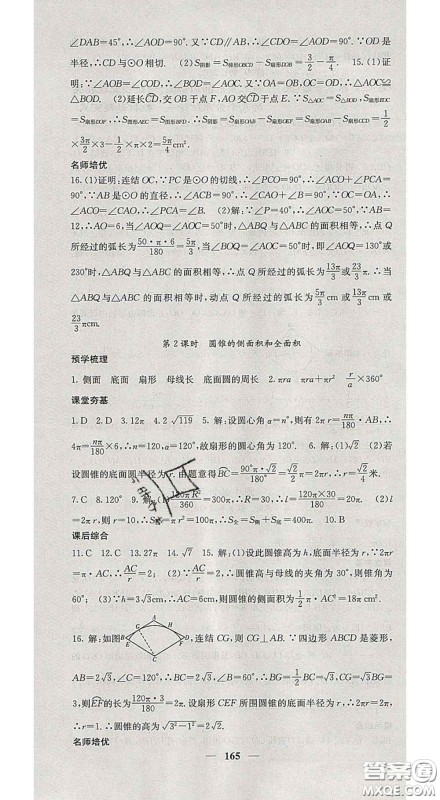 ∠DAB=45°,∴∠AOD=90°.又∵CD∥AB,∴∠CDO=∠AOD=90°.∵OD是
半径,∴CD与⊙O相切. (2)S阴影=S梯形OBCD-S扇形OBD=3/2-π/4. 15.(1)证
明:∵∠AOB=∠COD,∴∠BOD=∠AOC.又∵OA=OB,OC=OD,∴△AOC≌
△BOD. (2)延长CD,交OB于点F,AO交CD于点E.∵S△AOC=S△BOD,S扇形DOF
=S扇形COE,∴S图形AEC=S图形BFD.∴S阴影=S扇形OAB-S扇形EOF=S扇形OAB-S扇形COD=1/2
×3π/2×3-1/2×π×2=5π/4cm².
名师培优
16.(1)证明:连结OC.∵PC是⊙O的切线,∴∠PCO=90°.∴∠PCA+∠ACO=
90°.∵AB是⊙O的直径,∴∠ACB=90°.∴∠CAO+∠B=90°.∵OC=OA,∴
∠ACO=∠CAO,∴∠PCA=∠B. (2)解:∵∠P=40°,∴∠AOC=50°.∵AB=
12,∴AO=6,当∠AOQ=∠AOC=50°时,△ABQ与△ABC的面积相等,∴点Q
所经过的弧长为50·π·6/180=5π/3,当∠BOQ=∠AOC=50°时,即∠AOQ=130°或
230°时,△ABQ与△ABC的面积相等,∴点Q所经过的弧长为13π/3或23π/3.∴当
△ABQ与△ABC的面积相等时,动点Q所经过的弧长为5π/3cm或13π/3cm或
23/3πcm.
第2课时 圆锥的侧面积和全面积
预学梳理
1.侧面 底面 扇形 母线长 底面圆的周长 2.πra πra+πr² r/a×360°
课堂夯基
1.D 2.D 3.π 4.2 5.2√119 6.解:设圆心角α=n°,则有2πr=nπ/180·AB,∴
4π=nπ/180×6,∴n=120°,故扇形的圆心角为120°. 6.解:(1)√2 (2)若
设圆锥的底面圆半径为r,由题意得BC=90°π·√2/180°=√2/2π=2πr,∴r=√2/4米.
7.C 8.9 9.120° (1)120πR²/360=300π,∴R=30,∴l=120π×30/180=20π.
(2)l=2πr,则r=10,∴S底=πr²=100π,∴S全=S侧+S底=400π. 10.B
课后综合
11.C 12.C 13.27π 14.√7 15.解:(1)设此圆锥高为h,底面半径为r,∵2πr=
π·AC,∴AC/r=2; (2)∵AC/r=2,∴圆锥高与母线的夹角为30°,则∠BAC=
60°; (3)∵h=3√3cm,∴AC=6cm,则圆锥的侧面积为1/2π·AC²=18πcm².
16.解:如图 A B C D E F G H ,连结CG,则CG⊥AB.∵四边形ABCD是菱形,
AB=2√3,∴BC=AB=2√3,∵∠B=60°,∴BG=√3,∴CG=√3BG=
3,则EF的长为120π·3/180=2π.设扇形CEF所围圆锥的底面半径为r,∴2πr=2π,
∴r=1.∴圆锥的高为√(3²-1²)=2√2.
名师培优
165
答案圈
MXQE.COM